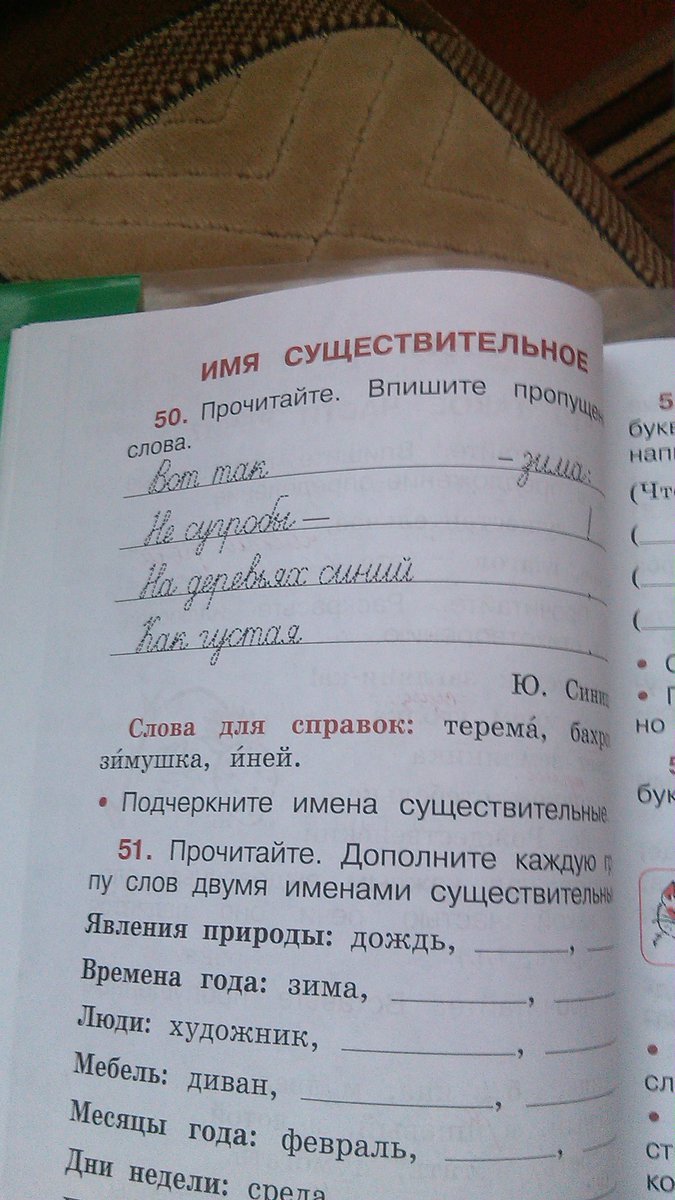 ИМЯ СУЩЕСТВИТЕЛЬНОЕ
50. Прочитайте. Впишите пропущен
слова.
Вот так – зима:
Не сугробы – !
На деревьях синий ,
Как густая .
Ю. Синиц
Слова для справок: терема́, бахро
зи́мушка, и́ней.
• Подчеркните имена существительные.
51. Прочитайте. Дополните каждую гр
пу слов двумя именами существительны
Явления природы: дождь, ,
Времена года: зима, ,
Люди: художник, ,
Мебель: диван, ,
Месяцы года: февраль, ,
Дни недели: среда
5
букв
нап
(Что
(
(
(
• С
• П
но
5
бук
•
сл
•
ст
ко